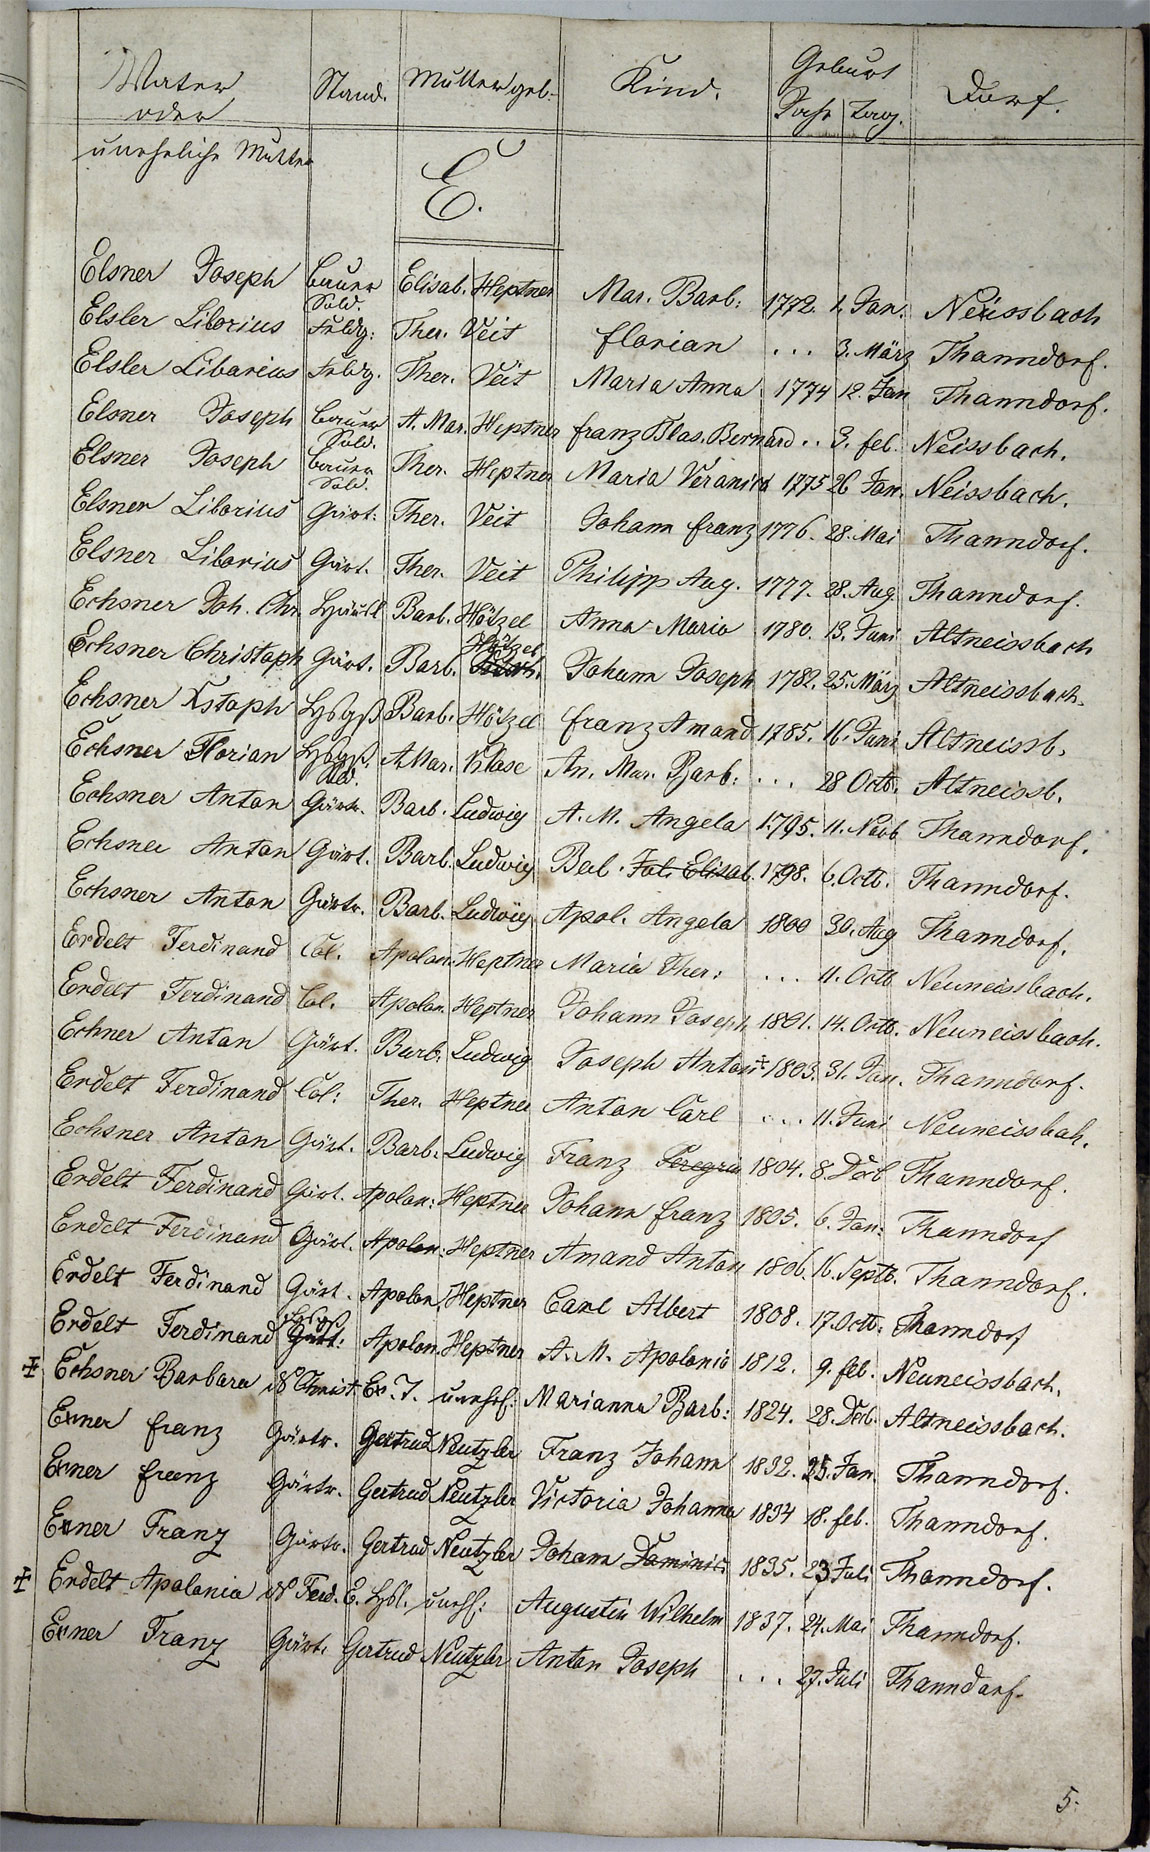 Vater Stand. Mutter geb. Kind. Geburt Dorf.
oder Jahr Tag.
uneheliche Mutter
E.
Elsner Joseph Bauer Elisab. Heptner Mar. Barb: 1772. 1. Jan. Neissbach
Sold.
Elsler Liborius Frldg: Ther. Veit Florian ... 3. März Thanndorf.
Elsler Liborius Frldg. Ther. Veit Maria Anna 1774 12. Jan Thanndorf.
Elsner Joseph Bauer A. Mar. Heptner Franz Blas. Bernard .. 3. Feb. Neissbach.
Sold.
Elsner Joseph Bauer Ther. Heptner Maria Veronica 1775 26 Jan. Neissbach.
Sold.
Elsner Liborius Gärt. Ther. Veit Johann Franz 1776. 28. Mai Thanndorf.
Elsner Liborius Gärt. Ther. Veit Philipp Aug. 1777. 28. Aug Thanndorf.
Echsner Joh. Chr. Häusl Barb. Hötzel Anna Maria 1780. 13. Juni Altneissbach
Hötzel
Echsner Christoph Gärt. Barb. Johann Joseph 1782. 25. März Altneissbach.
Echsner Xstoph Hsbß Barb. Hötzel Franz Amand 1785. 16. Juni Altneissb.
Echsner Florian Hsbß. A Mar. Klose An. Mar. Barb: ... 28 Octb. Altneissb.
Echsner Anton Gärtr. Barb. Ludwig A. M. Angela 1795. 11. Novb Thanndorf.
Echsner Anton Gärt. Barb. Ludwig Jul. Elisab. 1798. 6. Octb. Thanndorf.
Echsner Anton Gärtr. Barb. Ludwig Apol. Angela 1800 30. Aug Thanndorf.
Erdelt Ferdinand Col. Apolon. Heptner Maria Ther: ... 11. Octb Neuneissbach.
Erdelt Ferdinand Col. Apolon. Heptner Johann Joseph 1801. 14. Octb. Neuneissbach.
Echner Anton Gärt. Barb. Ludwig Joseph Anton 1803. 31. Jan. Thanndorf.
Erdelt Ferdinand Col: Ther. Heptner Anton Carl ... 11. Juni Neuneissbach.
Echsner Anton Gärt. Barb. Ludwig Franz Peregrin 1804. 8. Dcb Thanndorf.
Erdelt Ferdinand Gärt. Apolon: Heptner Johann Franz 1805. 6. Jan: Thanndorf
Erdelt Ferdinand Gärt. Apolon. Heptner Amand Anton 1806. 16. Septb. Thanndorf.
Erdelt Ferdinand Gärt. Apolon. Heptner Carl Albert 1808. 17. Octb. Thanndorf
Erdelt Ferdinand Gärt: Apolon. Heptner A. M. Apolonia 1812. 9. Feb. Neuneissbach.
Echsner Barbara Christ. Ex. T. unehl: Marianna Barb: 1824. 28. Dcb. Altneissbach.
Exner Franz Gärtr. Gertrud Neutzler Franz Johann 1832. 25. Jan. Thanndorf.
Exner Franz Gärtr. Gertrud Neutzler Victoria Johanna 1834 18. Feb. Thanndorf.
Exner Franz Gärtr. Gertrud Neutzler Johann Dominic 1835. 23 Juli Thanndorf.
Erdelt Apolonia Ferd. E. unehl: Augustin Wilhelm 1837. 24. Mai Thanndorf.
Exner Franz Gärt. Gertrud Neutzler Anton Joseph ... 27. Juli Thanndorf.
5.